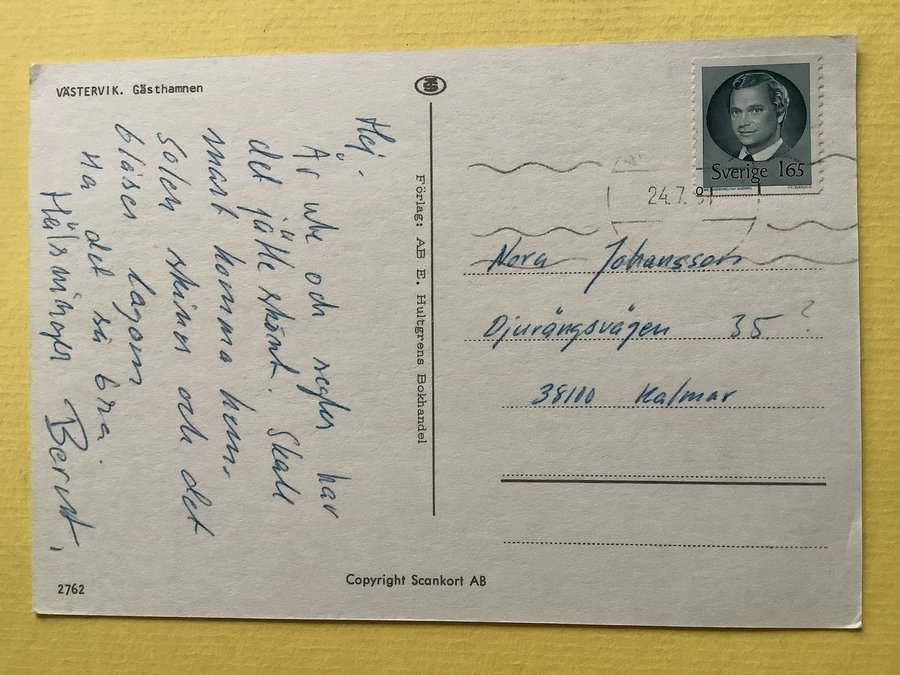 VÄSTERVIK. Gästhamnen
Hej.
Är ute och seglar har
det jätte skönt. Skall
snart komma hem.
Solen skiner och det
blåser lagom
Ha det så bra
Hälsningar
Förlag: AB E. Hultgrens Bokhandel
Sverige 165
24.7.81
Nora Johansson
Djurängsvägen 35 ?
38100 Kalmar
2762
Copyright Scankort AB